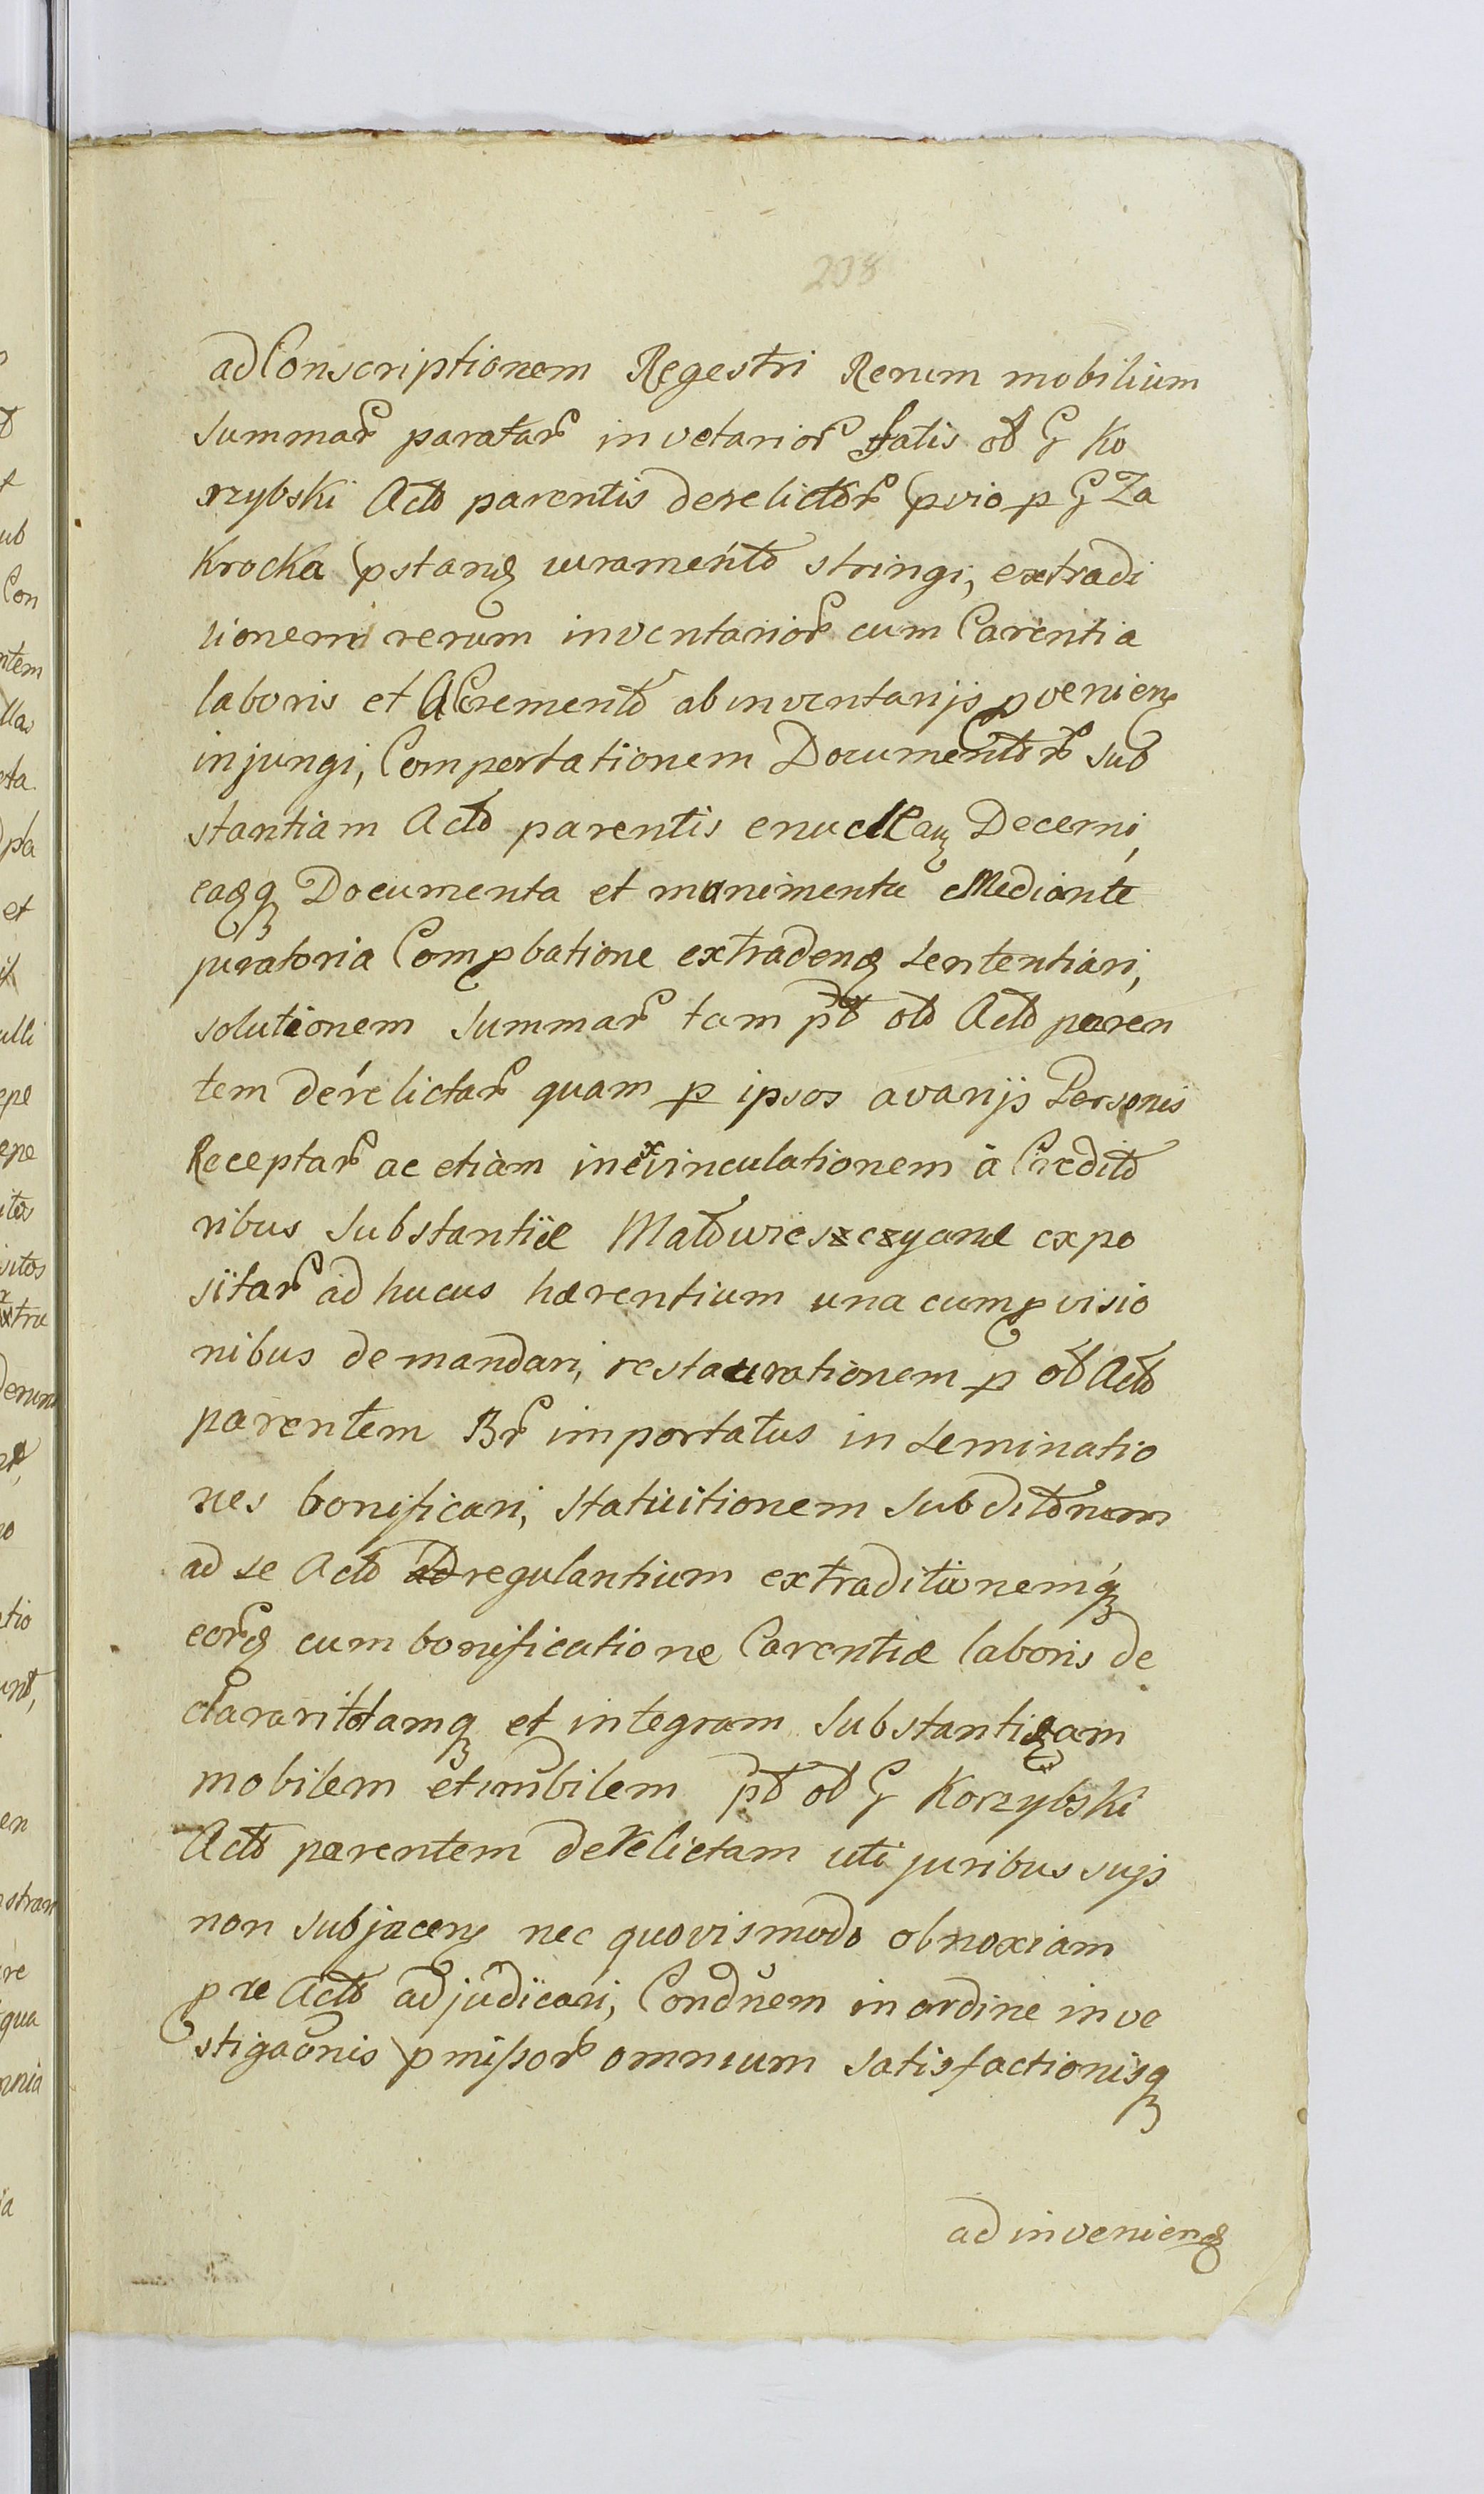 208
ad Conscriptionem Regestri Rerum mobilium
summar paratar invetarior fatis ob G Ko
rzybski Acto parentis derelictor pvio p G Za
krocka pstand iuramento stringi, extradi
tionem rerum inventarior cum Carentia
laboris et Acremento ab inventarijs pvenien
injungi, Comportationem Documentor sub
stantiam Acto parentis enuclean Decerni,
eadq Documenta et munimenta Mediante
juratoria Compbatione extradend sententiari,
solutionem summar tam pt ob Acto paren
tem derelictar quam p ipsos a varijs Personis
Receptar ac etiam inexvinculationem à Credito
ribus substantiæ Matowieszczyanæ expo
sitar ad hucus hærentium una cum pvisio
nibus demandari, restaurationem p ob Acto
parentem Br importatus in seminatio
nes bonificari, statuitionem subditorum
ad se Acto regulantium extraditionemq
eord cum bonificatione Carentiæ laboris de
clarari totamq et integram substantiam
mobilem et imbilem pt ob G Korzybski
Acto parentem derelictam uti juribus sujs
non subjacen nec quovismodo obnoxiam
pre Acto adjudicari, Condnem in ordine inve
stigaonis pmissor omnium satisfactionisq
ad inveniend